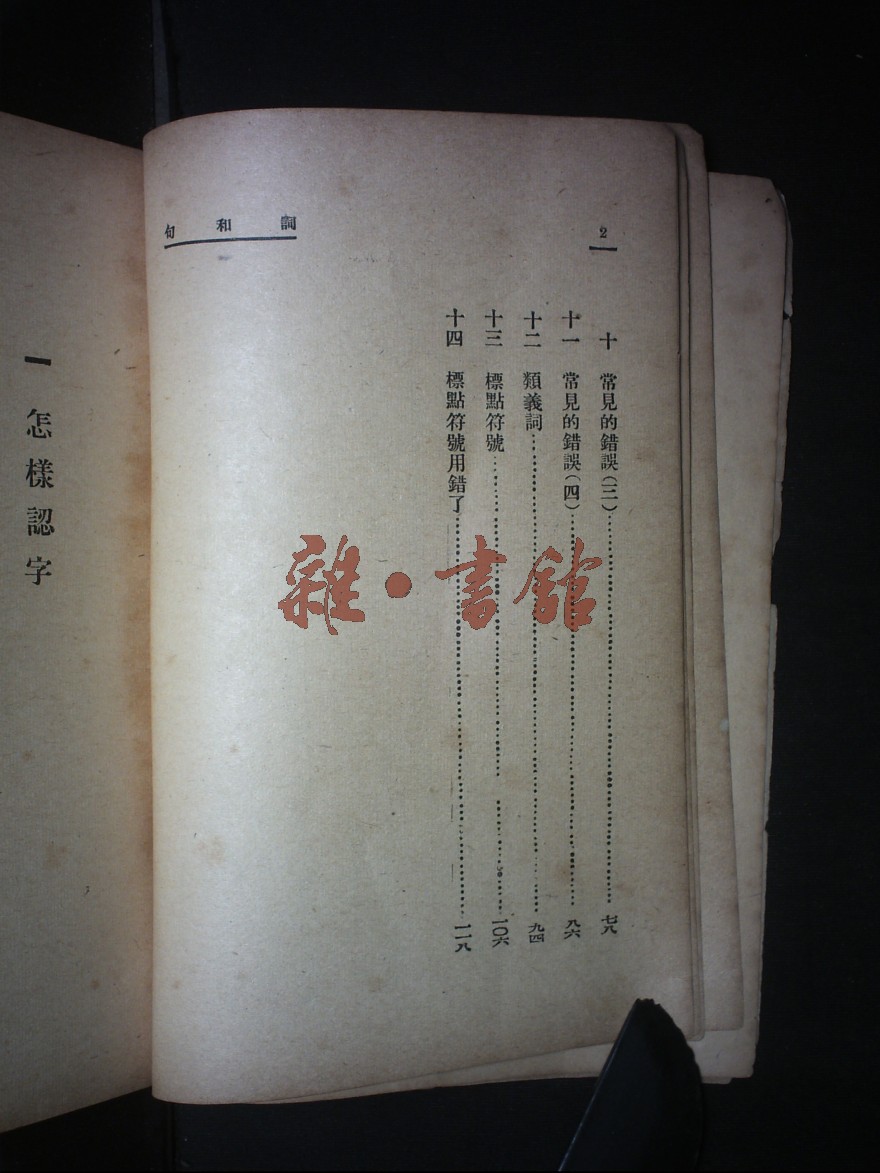 詞和句
2
十 常見的錯誤(三)……七八
十一 常見的錯誤(四)……八六
十二 類義詞……九四
十三 標點符號……一〇六
十四 標點符號用錯了……一一八
雜·書館
一 怎樣認字